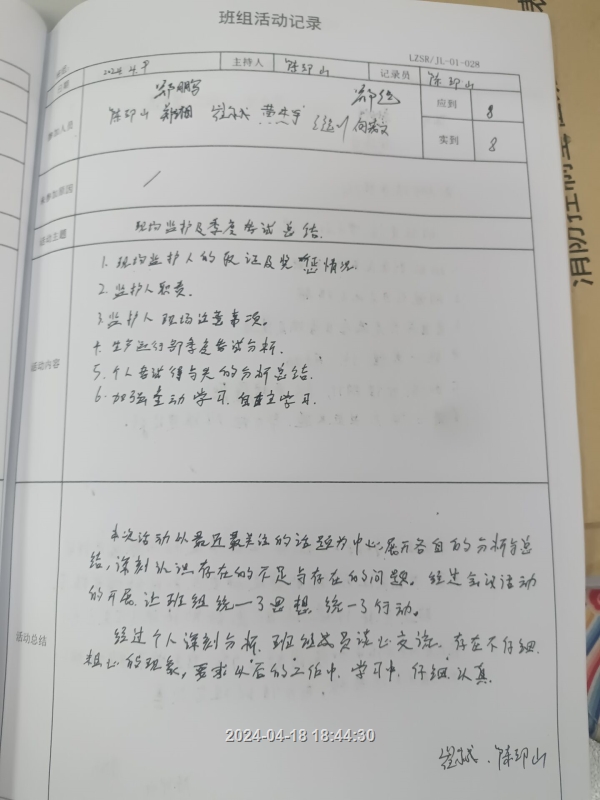 班组活动记录
LZSR/JL-01-028
日期 2024.4.9 主持人 陈印山 记录员 陈印山
郑鹏
参加人员 陈印山 黄杰 向宏文 应到 8
实到 8
未参加原因 /
活动主题 现场监护及季度考试总结.
活动内容
1. 现场监护人的取证及奖惩情况.
2. 监护人职责.
3. 监护人现场注意事项。
4. 生产运行部季度考试分析.
5. 个人考试得与失的分析总结.
6. 加强主动学习、自主学习.
活动总结
本次活动以最近最关注的话题为中心,展开各自的分析与总
结,深刻认识存在的不足与存在的问题。经过会议活动
的开展,让班组统一了思想,统一了行动。
经过个人深刻分析,班组成员谈心交流,存在不仔细.
粗心的现象。要求以后的工作中,学习中,仔细,认真.
2024-04-18 18:44:30
陈印山
消防控制